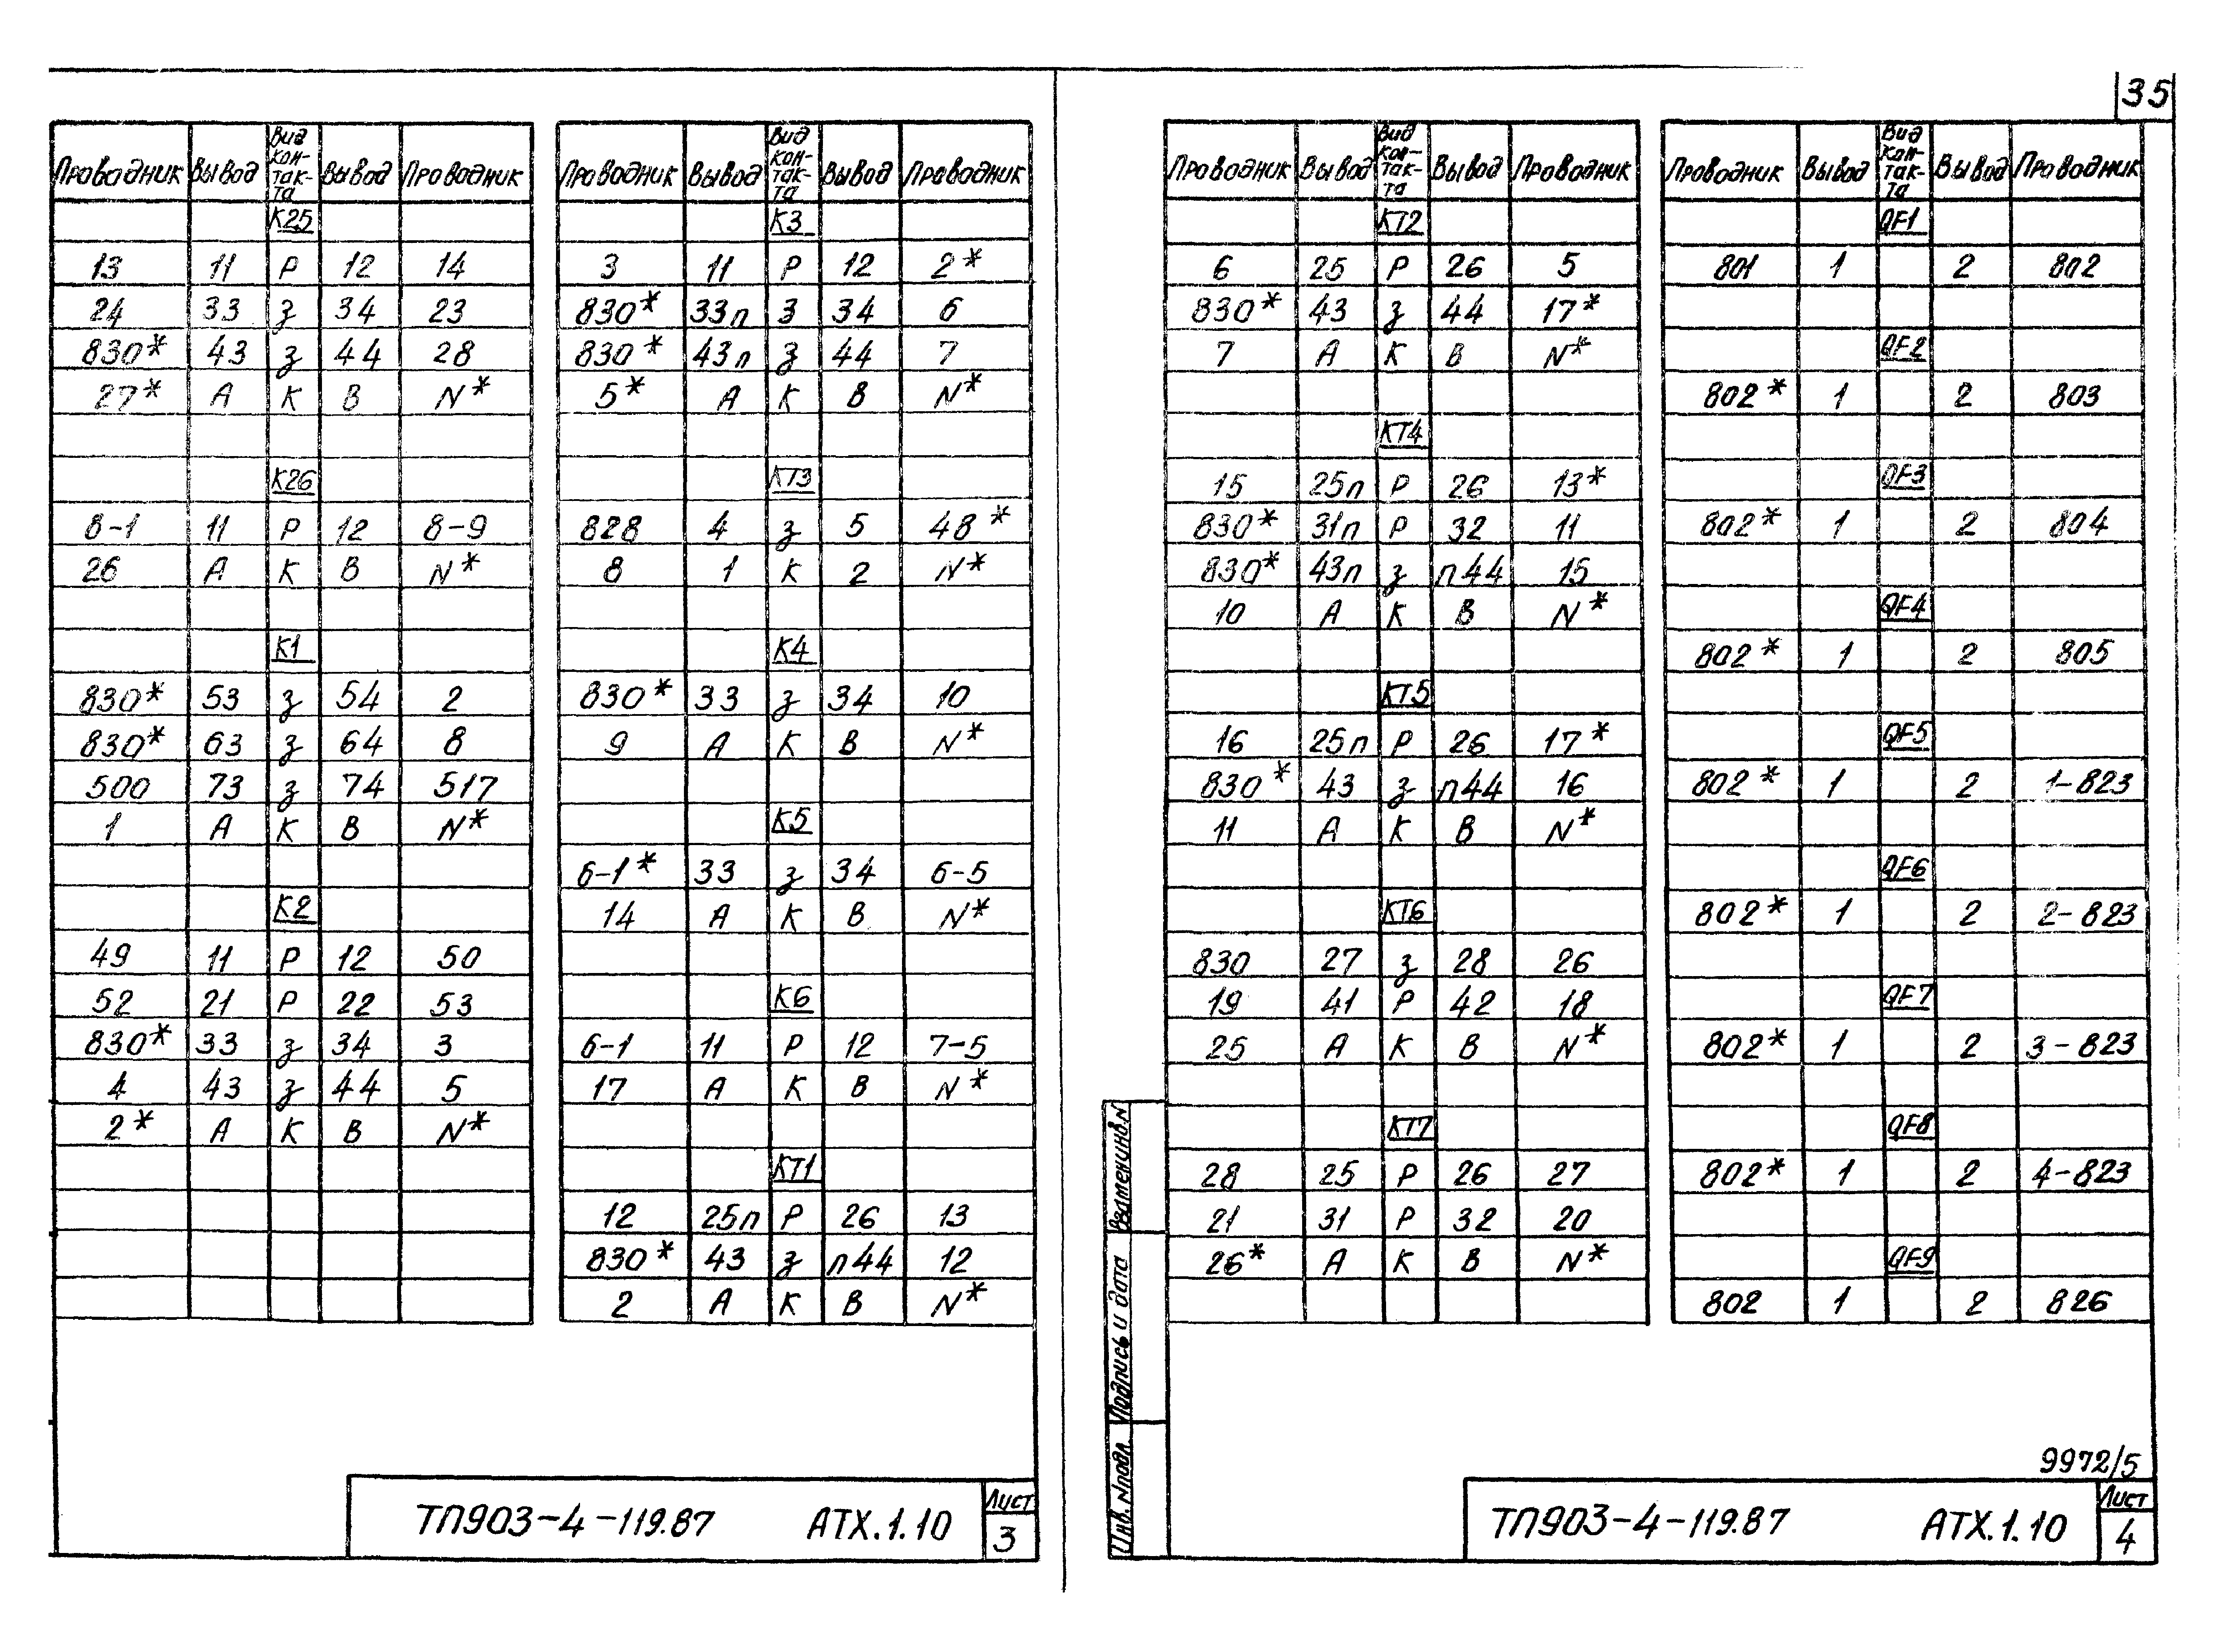 35
Проводник Вывод Вид кон-так-та Вывод Проводник
К25
13 11 Р 12 14
24 33 з 34 23
830* 43 з 44 28
27* А К В N*
К26
8-1 11 Р 12 8-9
26 А К В N*
К1
830* 53 з 54 2
830* 63 з 64 8
500 73 з 74 517
1 А К В N*
К2
49 11 Р 12 50
52 21 Р 22 53
830* 33 з 34 3
4 43 з 44 5
2* А К В N*
Проводник Вывод Вид кон-так-та Вывод Проводник
К3
3 11 Р 12 2*
830* 33п З 34 6
830* 43п з 44 7
5* А К В N*
КТ3
828 4 з 5 48*
8 1 К 2 N*
К4
830* 33 з 34 10
9 А К В N*
К5
6-1* 33 з 34 6-5
14 А К В N*
К6
6-1 11 Р 12 7-5
17 А К В N*
КТ1
12 25п Р 26 13
830* 43 з п44 12
2 А К В N*
ТП903-4-119.87 АТХ.1.10
Лист
3
Проводник Вывод Вид кон-так-та Вывод Проводник
КТ2
6 25 Р 26 5
830* 43 з 44 17*
7 А К В N*
КТ4
15 25п Р 26 13*
830* 31п Р 32 11
830* 43п з п44 15
10 А К В N*
КТ5
16 25п Р 26 17*
830* 43 з п44 16
11 А К В N*
КТ6
830 27 з 28 26
19 41 Р 42 18
25 А К В N*
КТ7
28 25 Р 26 27
21 31 Р 32 20
26* А К В N*
Проводник Вывод Вид кон-так-та Вывод Проводник
QF1
801 1 2 802
QF2
802* 1 2 803
QF3
802* 1 2 804
QF4
802* 1 2 805
QF5
802* 1 2 1-823
QF6
802* 1 2 2-823
QF7
802* 1 2 3-823
QF8
802* 1 2 4-823
QF9
802 1 2 826
Взамен инв.N
Подпись и дата
Инв. Nподл.
9972/5
ТП903-4-119.87 АТХ.1.10
Лист
4